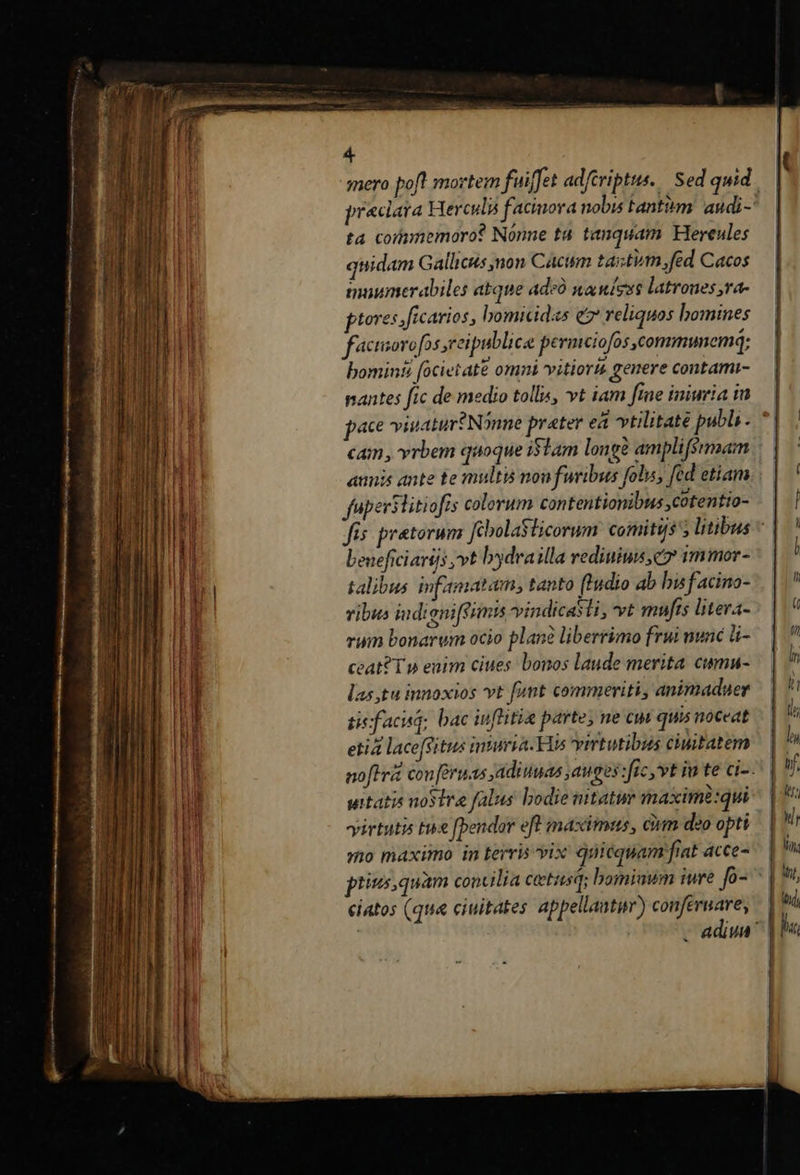 4
mero post mortem fuisset adscriptus. Sed quid
præclara Herculis facinora nobis tantùm audi-
ta commemoro? Nónne tu tanquam Hercules
quidam Gallicus, non Cacum tantùm, sed Cacos
innumerabiles atque adeò latrones, ra-
ptores, sicarios, homicidas & reliquos homines
facinorosos, reipublicæ perniciosos, communemq;
hominũ societatē omni vitiorũ genere contami-
nantes sic de medio tollis, vt iam sine iniuria in
pace viuatur? Nónne præter eã vtilitatē publi-
cam, vrbem quoque istam longè amplissimam
annis ante te multis non furibus solùs, sed etiam
superstitiosis colorum contentionibus, cõtentio-
sis prætorum scholasticorum comitijs, litibus
beneficiarijs, vt hydra illa rediuiuis, & immor-
talibus infamatam, tanto studio ab his facino-
ribus indignissimis vindicasti, vt musis litera-
rum bonarum ocio planè liberrimo frui nunc li-
ceat? Tu enim ciues bonos laude merita cumu-
las, tu innoxios vt sunt commeriti, animaduer
tis: facisq; hac iustitiæ parte, ne cui quis noceat
etiã lacessitus iniuria. His virtutibus ciuitatem
nostrã conseruas, adiuuas, auges: sic, vt in te ci-
uitatis nostræ salus hodie nitatur maximè: qui
virtutis tuæ splendor est maximus, cùm deo opti
mo maximo in terris vix quicquam fiat acce-
ptius, quàm concilia cœtusq; hominum iure so-
ciatos (quæ ciuitates appellantur) conseruare,
adiuu